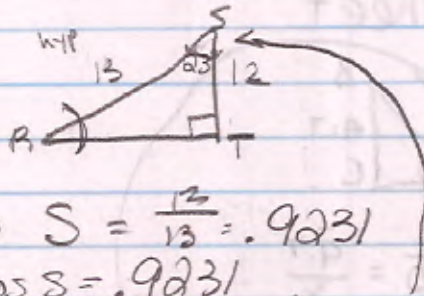 S
hyp
13
23
12
R
T
S = 12/13 = .9231
os s = .9231